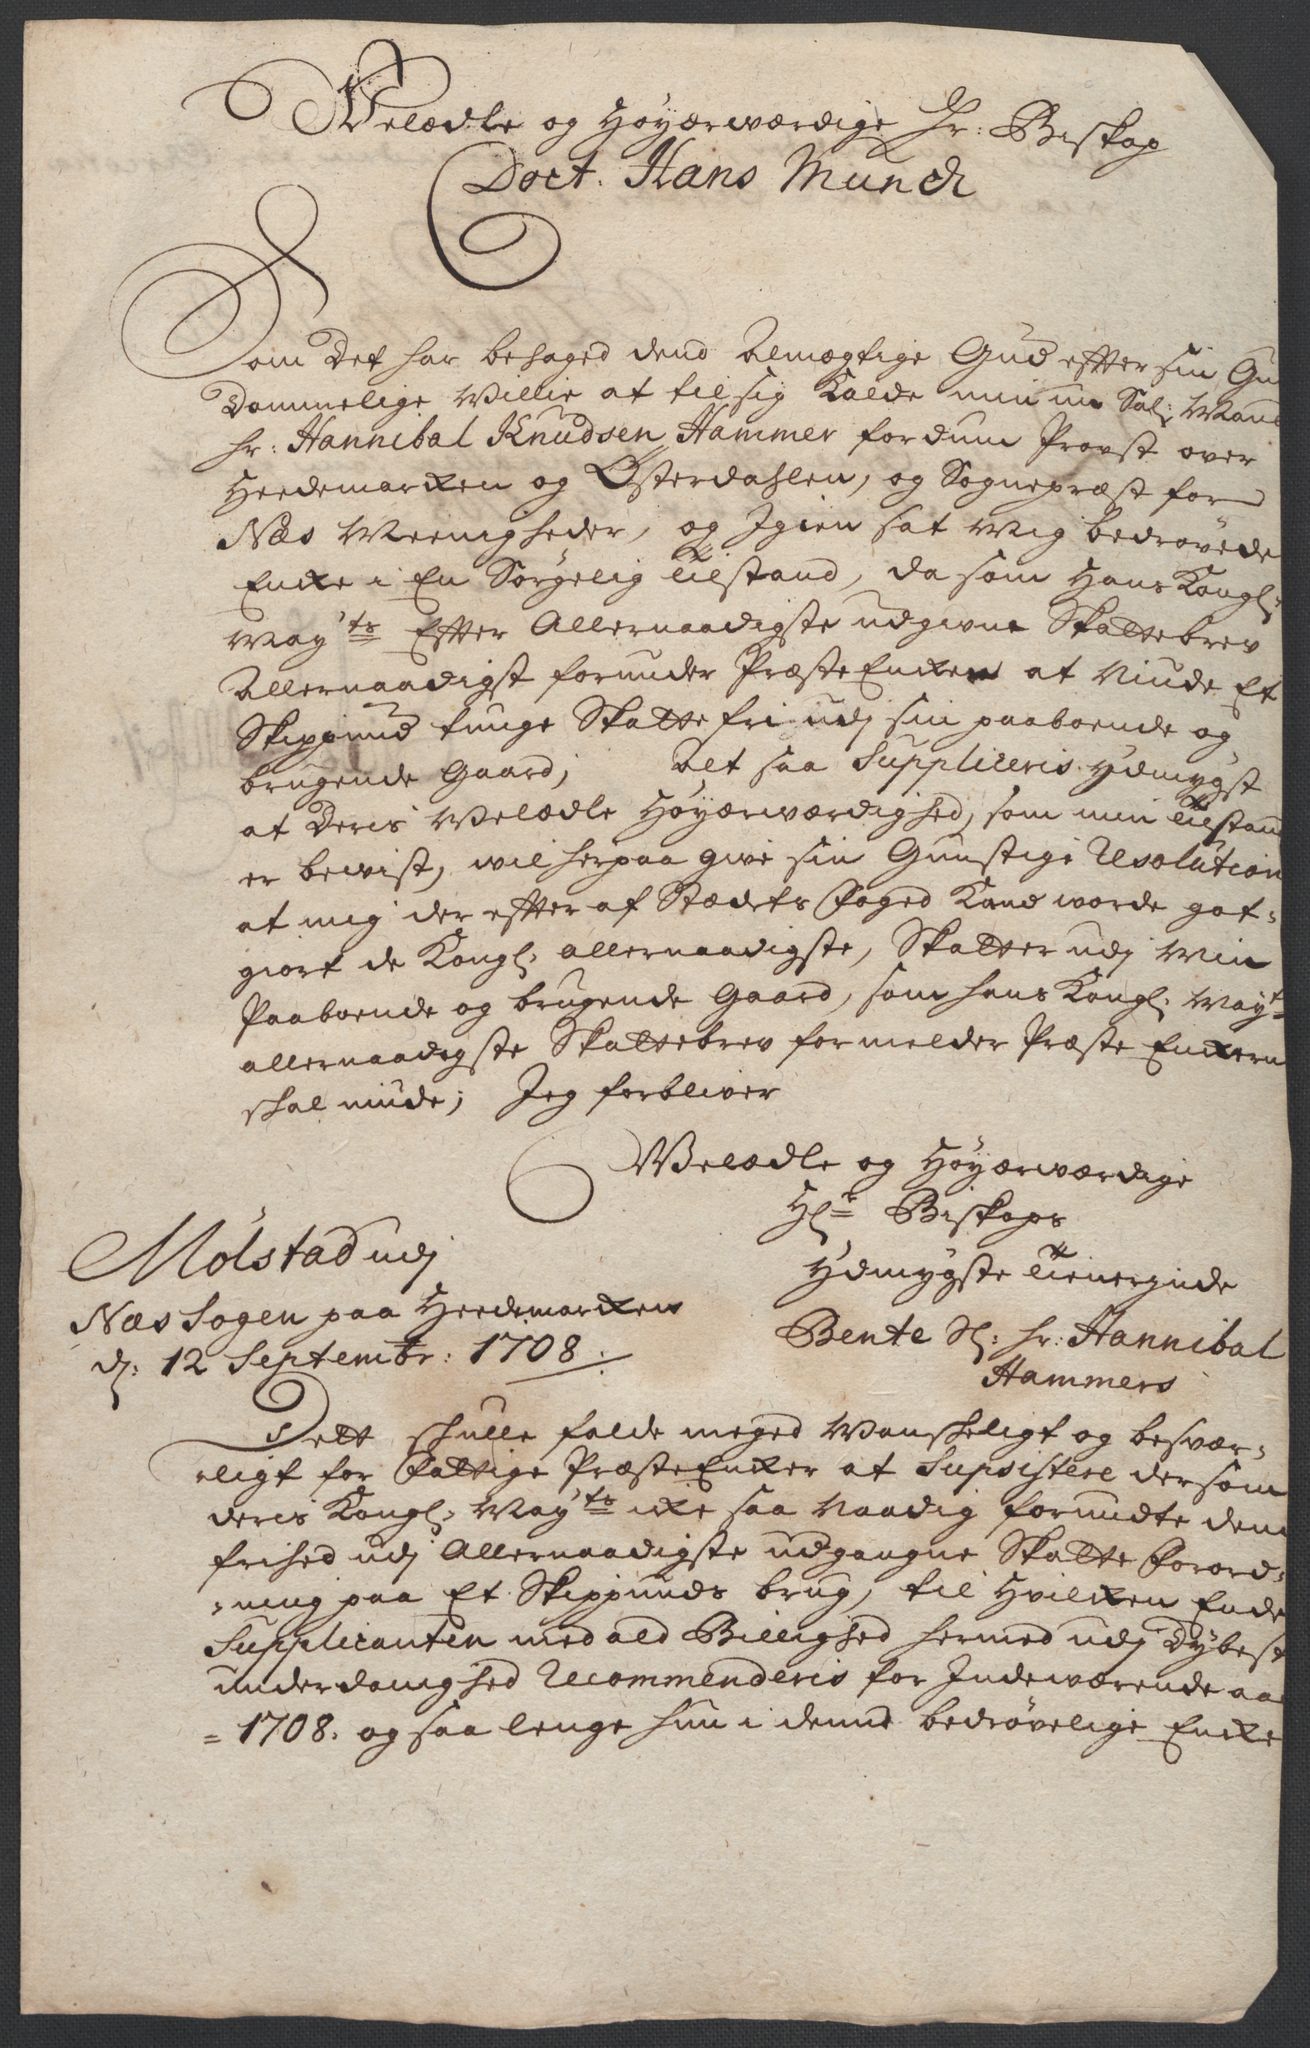 Velædle og Høyærwærdige Hr: Biskop
Doct. Hans Munch
Som Det har behaged dend Almægtige Gud effter sin Gu
dommelige Villie at til sig Kalde min nu Sal: Mand
Hr: Hannibal Knudsen Hammer fordum Provst over
Heedemarken og Østerdahlen, og Sognepræst for
Næs Meenigheder, og Igien sat Mig bedrøvede
Encke i En Sørgelig tilstand, da som Hans Kongl:
May:ts Effter Allernaadigste udgivne Skattebrev
Allernaadigst forunder Præste Encker at Niude Et
Skippund tunge Skatte fri udj sin paaboende og
brugende Gaard; Alt saa Suppliceris ydmygst
at Deris Velædle Høyærwærdighed, som min tilstand
er bevist, wil herpaa give sin Gunstige Resolution
at mig der effter af Stædets Foged Kand worde got-
giort de Kongl: allernaadigste, Skatter udj Min
Paaboende og brugende Gaard, som hans Kongl: May:t
allernaadigste Skattebrev formelder Præste Enckern
skal niude; Jeg forbliver
Velædle og Høyærwærdige
Hr Biskops
Ydmygste tienerinde
Bente Sl: Hr: Hannibal
Hammers
Mølstad udj
Næs Sogen paa Heedemarken
d: 12 Septembr: 1708.
Dett skulle falde meged Vanskeligt og besvær-
ligt for Fattige Præste Encker at Supsistere dersom
deris Kongl: May:ts icke saa Naadig forundte dem
frihed udj Allernaadigste udgangne Skatte Forord-
ning paa Et Skippunds brug, til Hvilken Ende
Supplicanten med ald Billighed hermed udj Dybest
underdanighed Recommenderis for Indeværende aar
1708. og saa lenge hun i denne bedrøvelige Encke